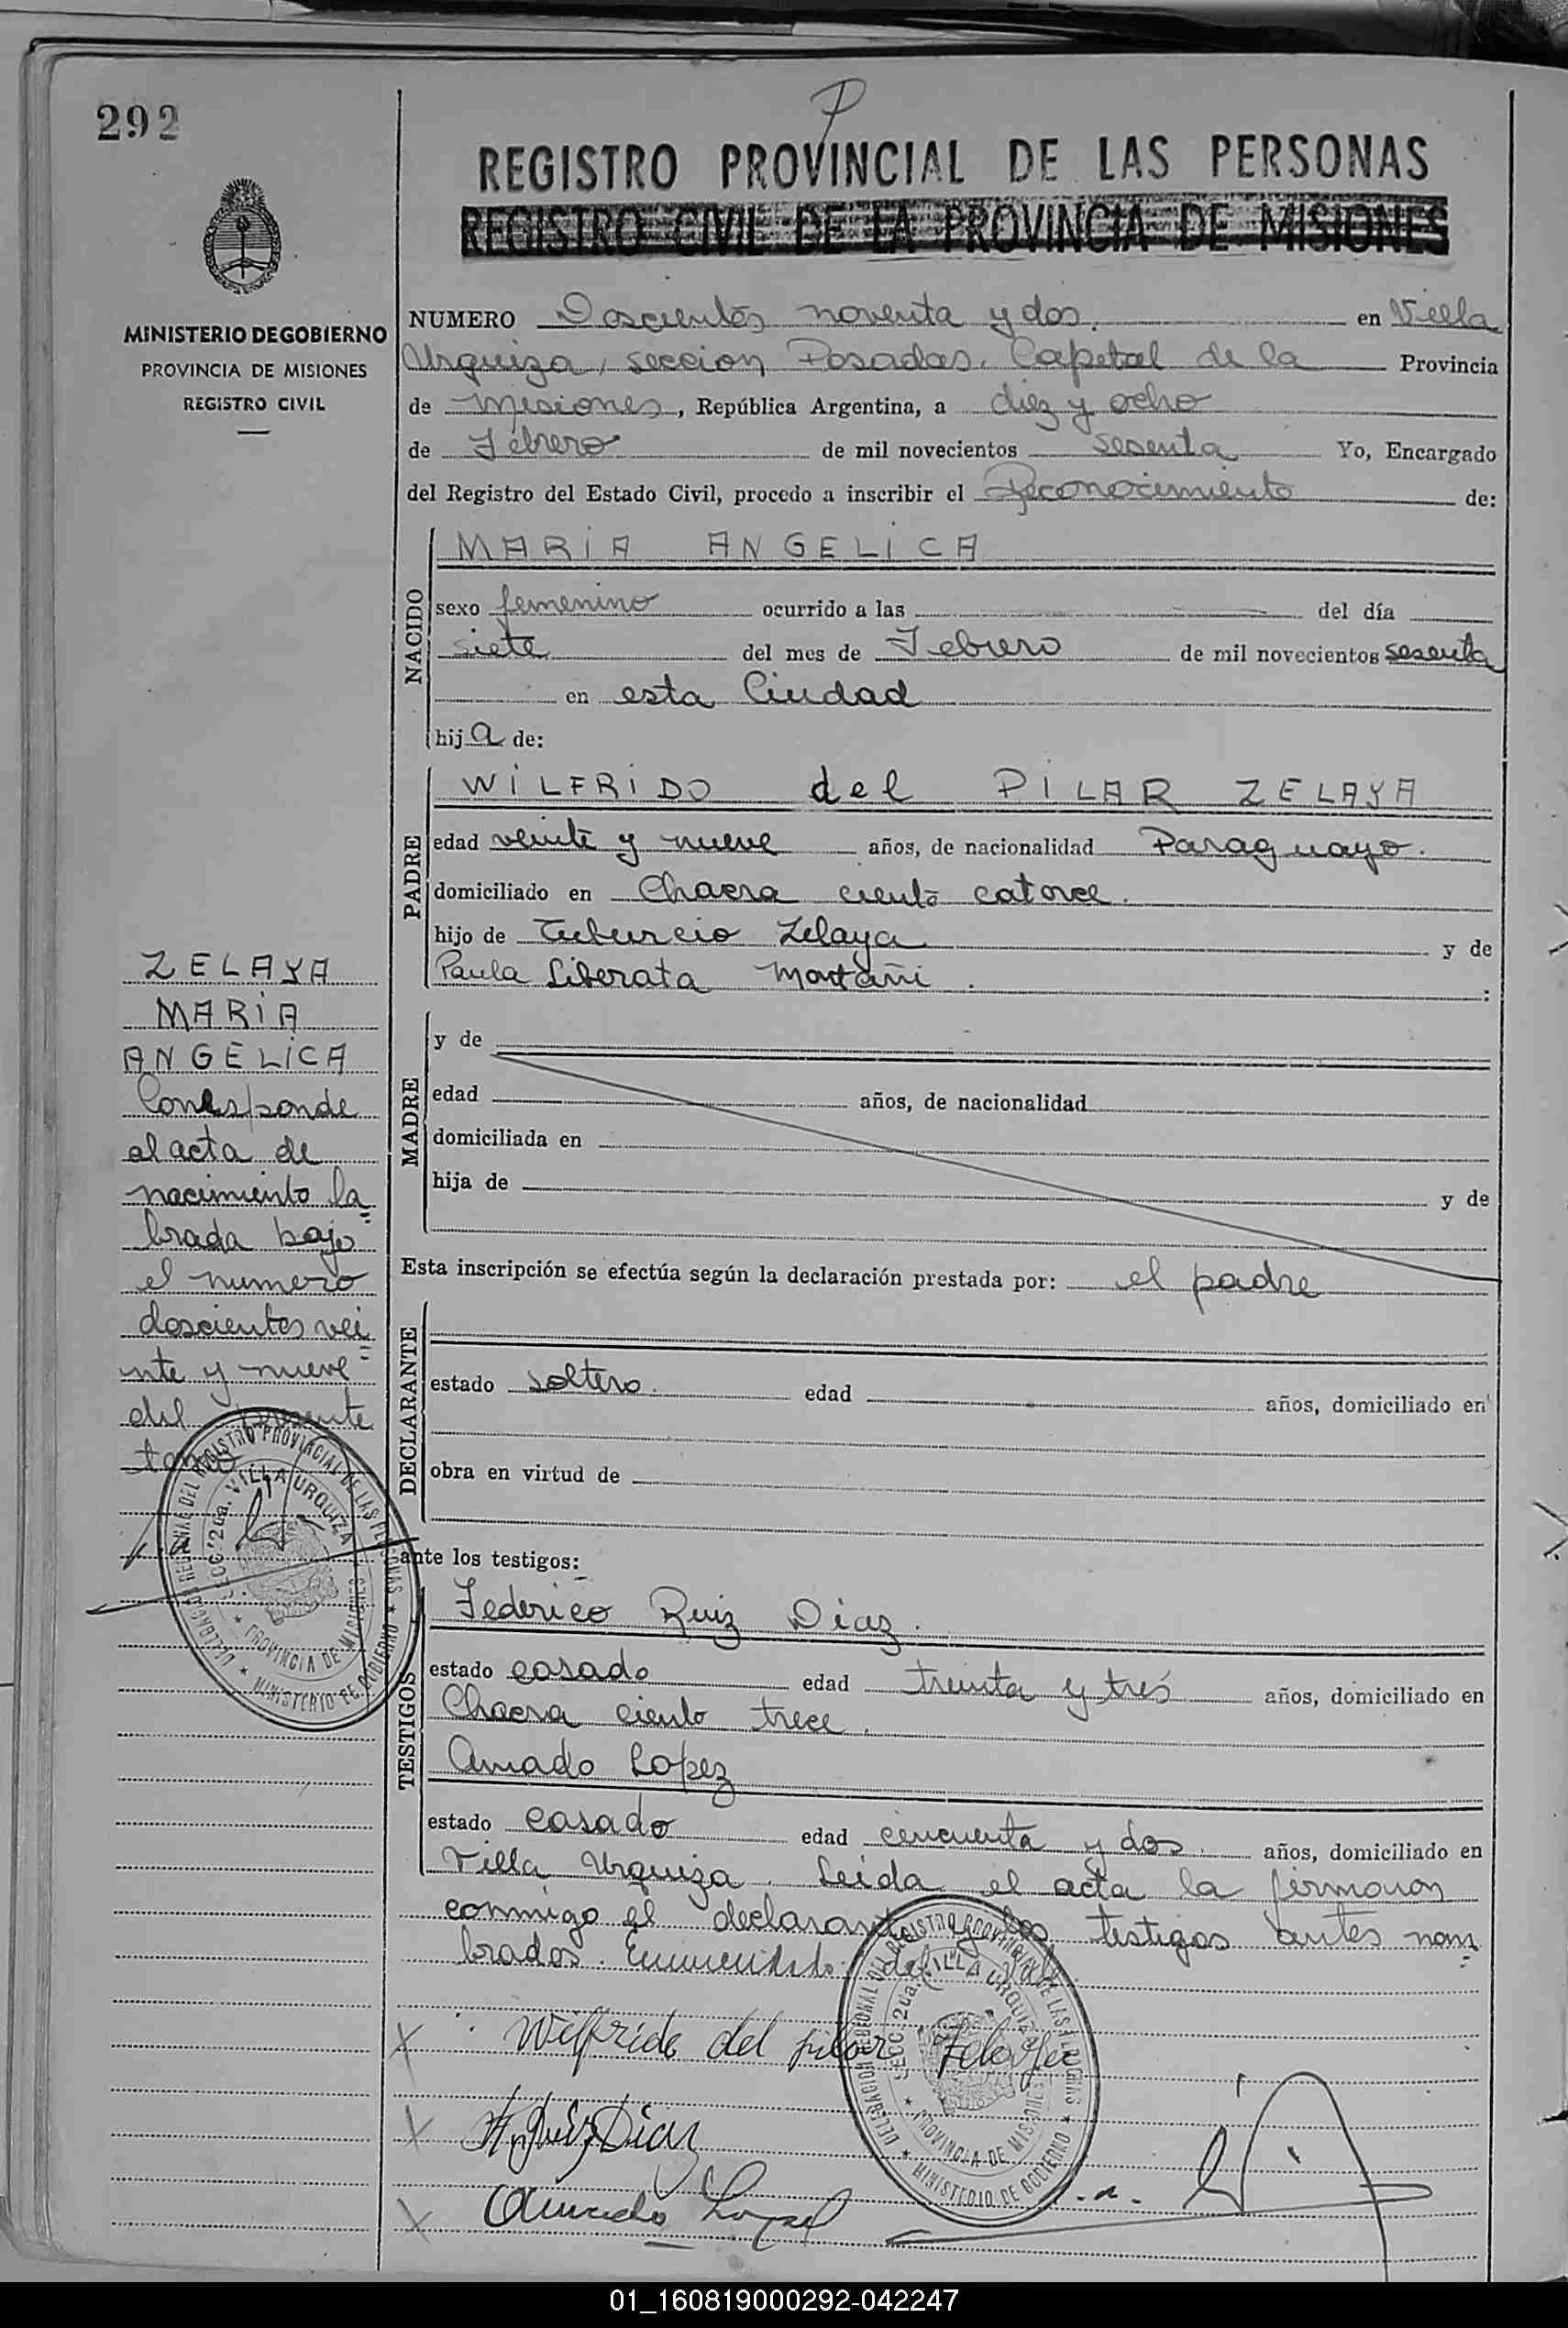 292
P
REGISTRO PROVINCIAL DE LAS PERSONAS
REGISTRO CIVIL DE LA PROVINCIA DE MISIONES
MINISTERIO DE GOBIERNO
PROVINCIA DE MISIONES
REGISTRO CIVIL
NUMERO Doscientos noventa y dos. en Villa
Urquiza, seccion Posadas, Capital de la Provincia
de Misiones, República Argentina, a diez y ocho
de Febrero de mil novecientos sesenta Yo, Encargado
del Registro del Estado Civil, procedo a inscribir el Reconocimiento de:
NACIDO
MARIA ANGELICA
sexo femenino ocurrido a las del día
siete del mes de Febrero de mil novecientos sesenta
en esta Ciudad
hija de:
PADRE
WILFRIDO del PILAR ZELAYA
edad veinte y nueve años, de nacionalidad Paraguayo.
domiciliado en Chacra ciento catorce.
hijo de Tiburcio Zelaya y de
Paula Liberata :
MADRE
y de
edad años, de nacionalidad
domiciliada en
hija de y de
Esta inscripción se efectúa según la declaración prestada por: el padre
DECLARANTE
estado soltero. edad años, domiciliado en
obra en virtud de
ante los testigos:
TESTIGOS
Federico Ruiz Diaz.
estado casado edad treinta y tres años, domiciliado en
Chacra ciento trece.
Amado Lopez
estado casado edad cincuenta y dos. años, domiciliado en
Villa Urquiza. Leida el acta la firmaron
conmigo el declarante y los testigos antes nom
brados. Enmendado: del: Vale.
Wilfrido del pilar Zelaya
Ruiz Diaz
Amado Lopez
ZELAYA
MARIA
ANGELICA
Corresponde
al acta de
nacimiento la=
brada bajo
el numero
doscientos vei=
nte y nueve
del presente
tomo
DELEGACION REGIONAL DEL REGISTRO PROVINCIAL DE LAS PERSONAS
SECC. 2da. VILLA URQUIZA
PROVINCIA DE MISIONES
MINISTERIO DE GOBIERNO
DELEGACION REGIONAL DEL REGISTRO PROVINCIAL DE LAS PERSONAS
SECC. 2da. VILLA URQUIZA
PROVINCIA DE MISIONES
MINISTERIO DE GOBIERNO
01_160819000292-042247